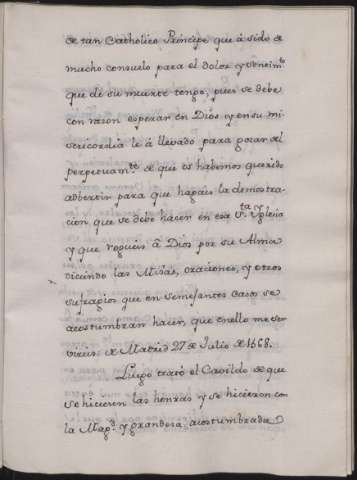 de tan Catholico Principe que á sido de
mucho consuelo para el dolor y sentim.to
que de su muerte tengo, pues se debe
con razon esperar en Dios, y en su mi-
sericordia le á llevado para gozar de el
perpetuam.te de que os habemos querido
advertir para que hagais la demostra-
cion que se debe hacer en esa S.ta Yglesia
y que rogueis á Dios por su Alma
diciendo las Misas, oraciones, y otros
sufragios que en semejantes casos se
acostumbran hacer, que en ello me ser-
vireis de Madrid 27 de Julio de 1568.
Luego trató el Cavildo de que
se hiciesen las honras y se hicieron con
la Mag.d y grandeza acostumbrada